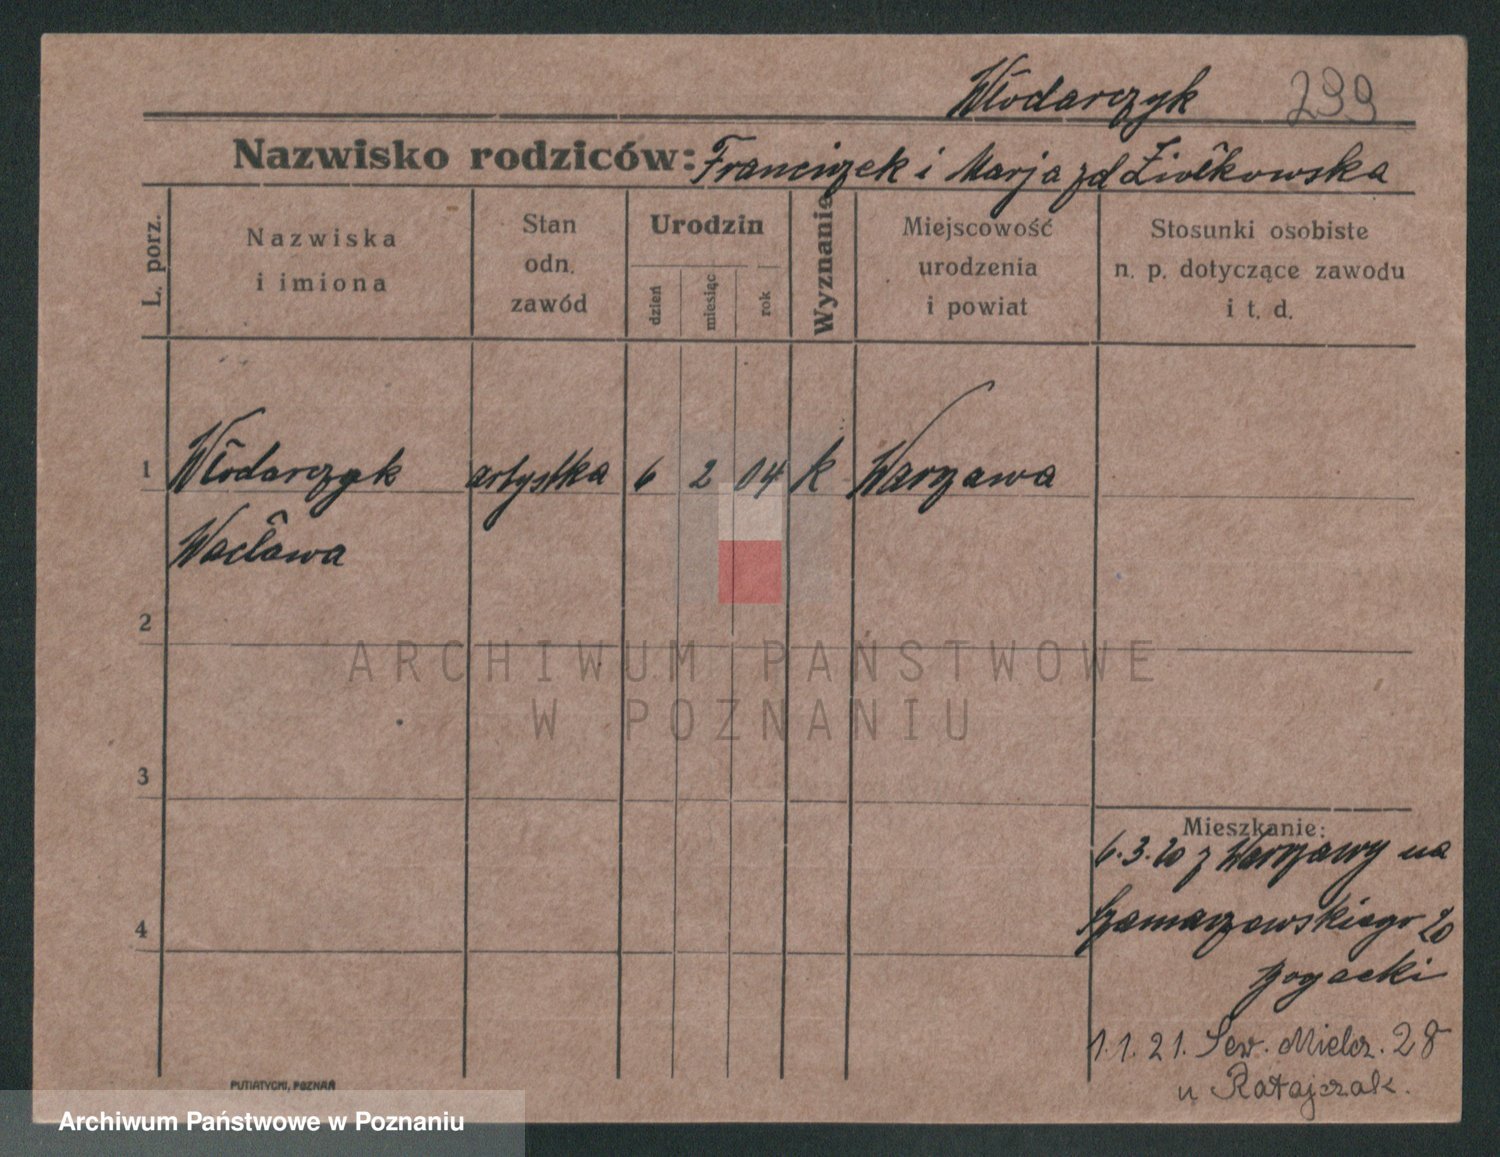 Włodarczyk 299
Nazwisko rodziców: Franciszek i Marja zd Ziółkowska
L. porz.
Nazwiska
i imiona
Stan
odn.
zawód
Urodzin
dzień
miesiąc
rok
Wyznanie
Miejscowość
urodzenia
i powiat
Stosunki osobiste
n. p. dotyczące zawodu
i t. d.
1 Włodarczyk artystka 6 2 04 k Warszawa
Wacława
2
ARCHIWUM PAŃSTWOWE
W POZNANIU
3
Mieszkanie:
6.3.20 z Warszawy na
Szamarzewskiego 20
4
1.1.21. Sew. Mielcz. 28
u Ratajczak.
PUTIATYCKI, POZNAŃ
Archiwum Państwowe w Poznaniu